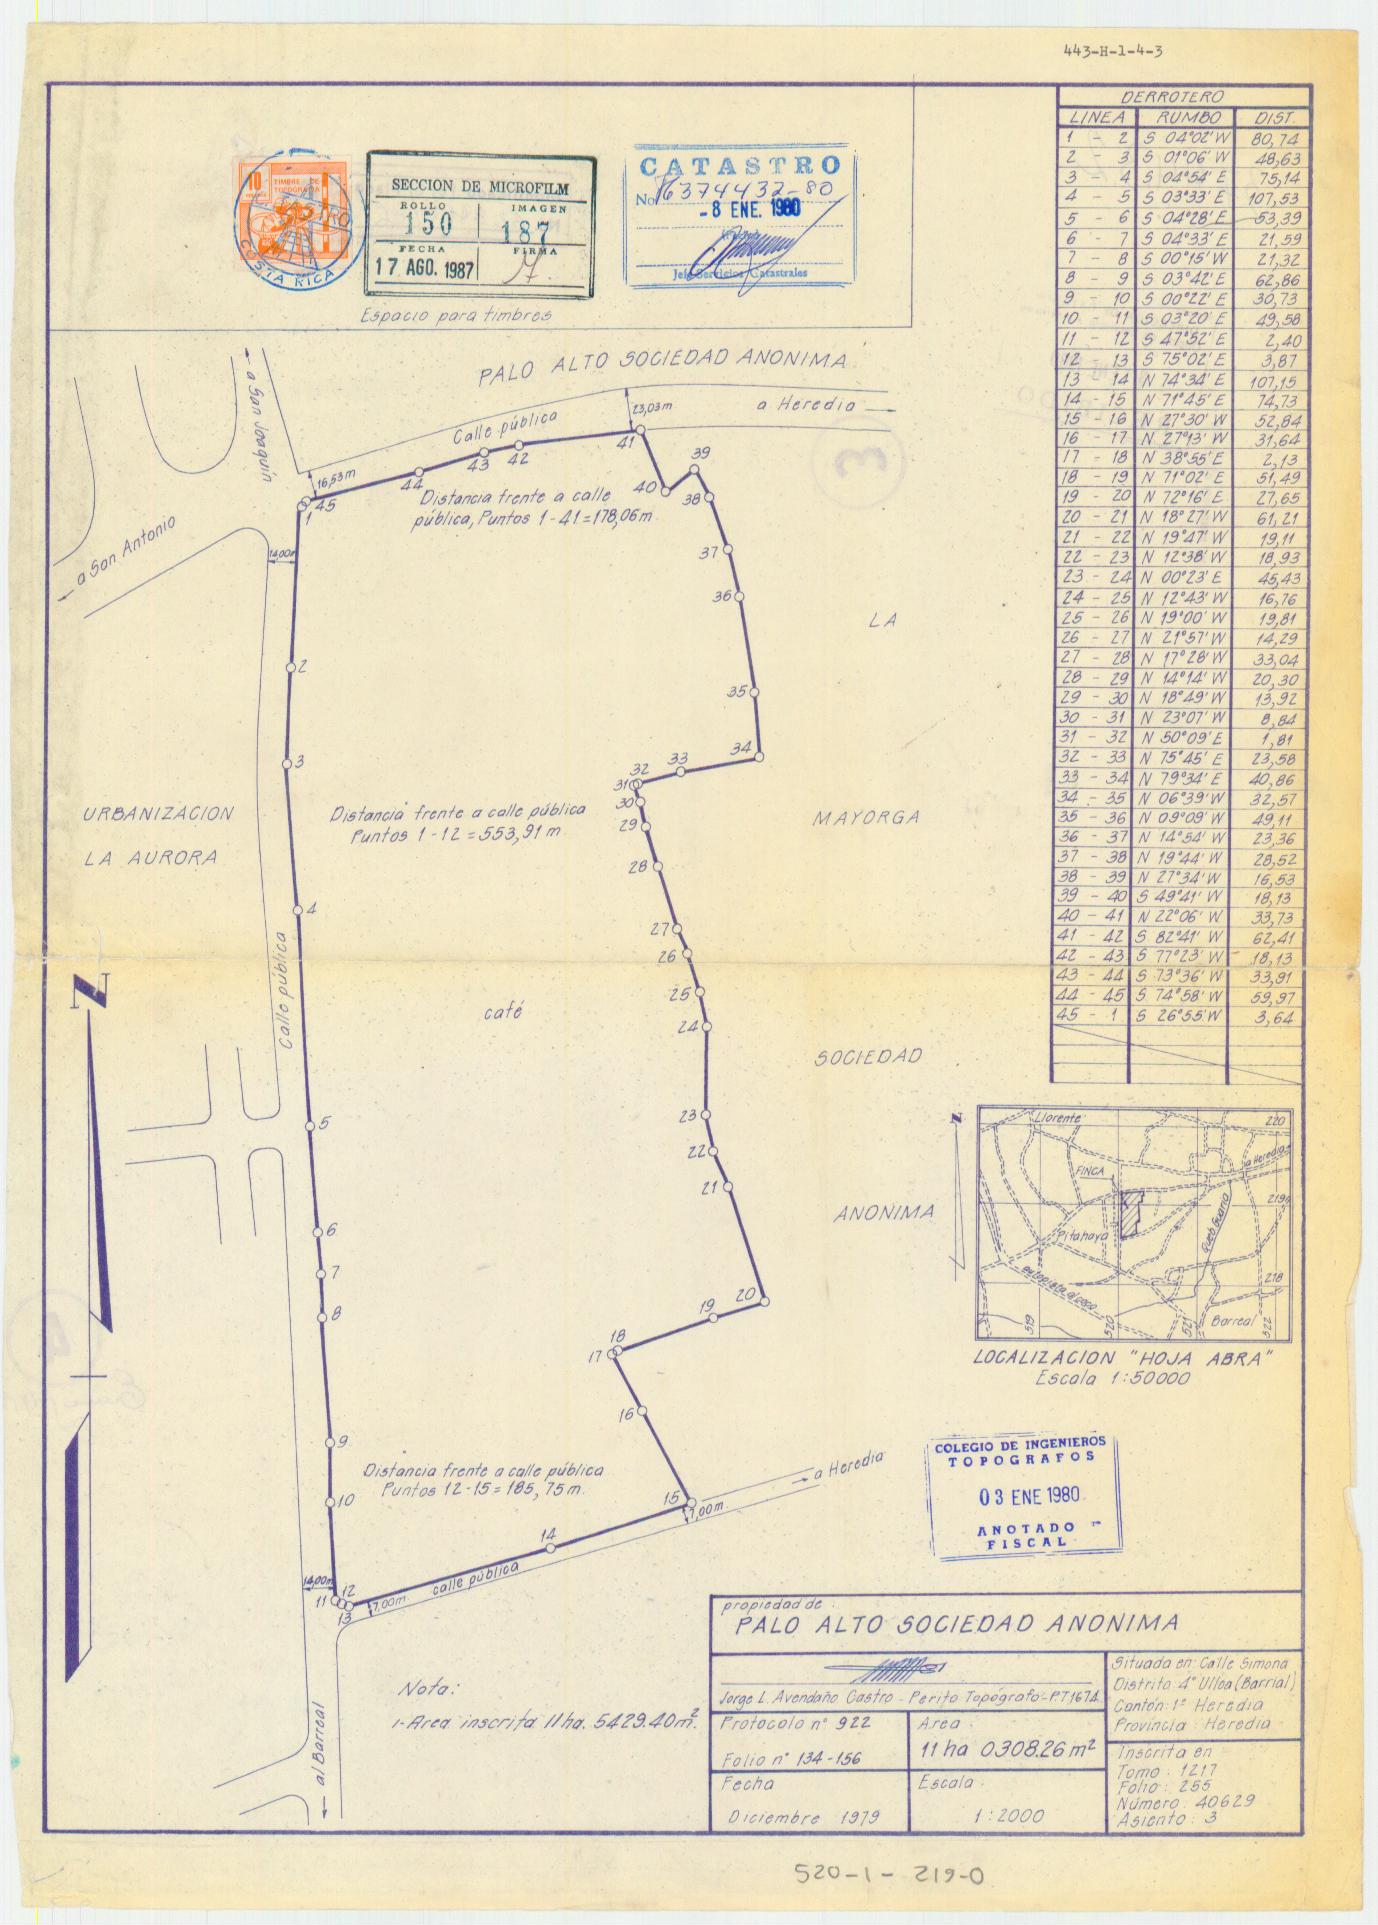 443-H-1-4-3
DERROTERO
LINEA RUMBO DIST.
1 - 2 S 04°02' W 80,74
2 - 3 S 01°06' W 48,63
3 - 4 S 04°54' E 75,14
4 - 5 S 03°33' E 107,53
5 - 6 S 04°28' E 53,39
6 - 7 S 04°33' E 21,59
7 - 8 S 00°15' W 21,32
8 - 9 S 03°42' E 62,86
9 - 10 S 00°22' E 30,73
10 - 11 S 03°20' E 49,58
11 - 12 S 47°52' E 2,40
12 - 13 S 75°02' E 3,87
13 - 14 N 74°34' E 107,15
14 - 15 N 71°45' E 74,73
15 - 16 N 27°30' W 52,84
16 - 17 N 27°13' W 31,64
17 - 18 N 38°55' E 2,13
18 - 19 N 71°02' E 51,49
19 - 20 N 72°16' E 27,65
20 - 21 N 18°27' W 61,21
21 - 22 N 19°47' W 19,11
22 - 23 N 12°38' W 18,93
23 - 24 N 00°23' E 45,43
24 - 25 N 12°43' W 16,76
25 - 26 N 19°00' W 19,81
26 - 27 N 21°57' W 14,29
27 - 28 N 17°28' W 33,04
28 - 29 N 14°14' W 20,30
29 - 30 N 18°49' W 13,92
30 - 31 N 23°07' W 8,84
31 - 32 N 50°09' E 1,81
32 - 33 N 75°45' E 23,58
33 - 34 N 79°34' E 40,86
34 - 35 N 06°39' W 32,57
35 - 36 N 09°09' W 49,11
36 - 37 N 14°54' W 23,36
37 - 38 N 19°44' W 28,52
38 - 39 N 27°34' W 16,53
39 - 40 S 49°41' W 18,13
40 - 41 N 22°06' W 33,73
41 - 42 S 82°41' W 62,41
42 - 43 S 77°23' W 18,13
43 - 44 S 73°36' W 33,91
44 - 45 S 74°58' W 59,97
45 - 1 S 26°55' W 3,64
10
TIMBRE DE
TOPOGRAFIA
COSTA RICA
SECCION DE MICROFILM
ROLLO IMAGEN
150 187
FECHA FIRMA
17 AGO. 1987
CATASTRO
No
-8 ENE. 1980
Jefe Servicios Catastrales
Espacio para timbres
PALO ALTO SOCIEDAD ANONIMA
a San Joaquín
Calle pública
23,03m
a Heredia
16,53m
a San Antonio
14,00m
Distancia frente a calle
pública, Puntos 1-41=178,06m
45
44
43
42
41
40
39
38
37
36
35
34
33
32
31
30
29
28
27
26
25
24
23
22
21
20
19
18
17
16
15
14
13
12
11
10
9
8
7
6
5
4
3
2
1
LA
MAYORGA
SOCIEDAD
ANONIMA
URBANIZACION
LA AURORA
Distancia frente a calle pública
Puntos 1-12=553,91 m
Calle pública
café
N
Distancia frente a calle pública
Puntos 12-15=185,75m.
a Heredia
7,00m.
14,00m
7,00m.
calle pública
al Barreal
Nota:
1-Area inscrita 11ha. 5429.40m².
N
Llorente
220
a Heredia
FINCA
219
Pitahaya
Queb Guaria
218
Barreal
519
520
521
522
LOCALIZACION "HOJA ABRA"
Escala 1:50000
COLEGIO DE INGENIEROS
TOPOGRAFOS
03 ENE 1980
ANOTADO
FISCAL
propiedad de:
PALO ALTO SOCIEDAD ANONIMA
Jorge L. Avendaño Castro - Perito Topógrafo-P.T.1674
Situada en: Calle Simona
Distrito: 4° Ulloa (Barrial)
Cantón: 1° Heredia
Provincia: Heredia
Protocolo n° 922
Folio n° 134-156
Area:
11 ha 0308.26 m²
Fecha
Diciembre 1979
Escala:
1:2000
Inscrita en
Tomo: 1217
Folio: 255
Número: 40629
Asiento: 3
520-1-219-0